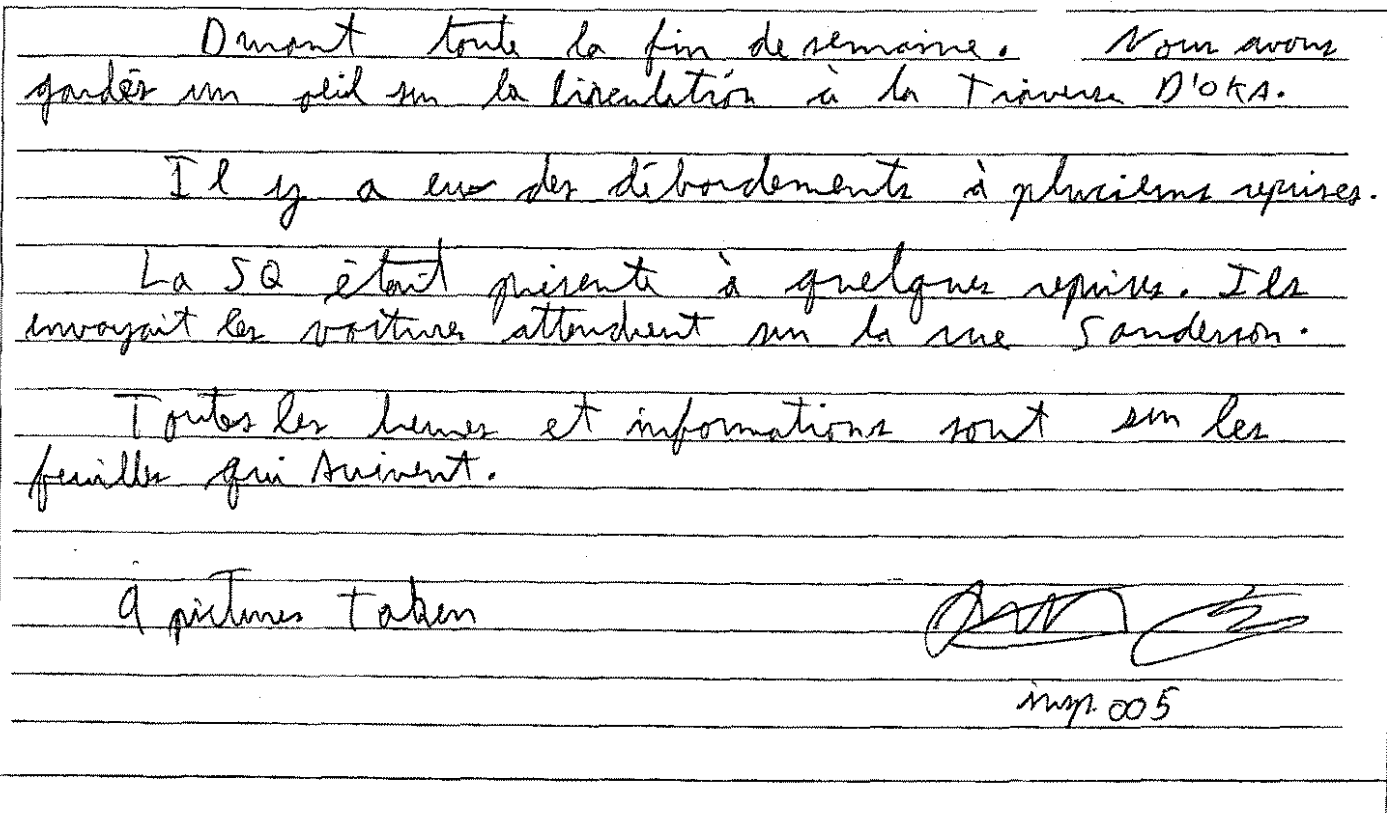 Durant toute la fin de semaine. Nous avons
gardés un oeil sur la circulation à la Traverse D'OKA.
Il y a eus des débordements à plucieurs reprises.
La SQ était présente à quelques reprises. Ils
envoyait les voitures attendrent sur la rue Sanderson.
Toutes les heures et informations sont sur les
feuilles qui suivent.
9 pictures Taken
insp. 005